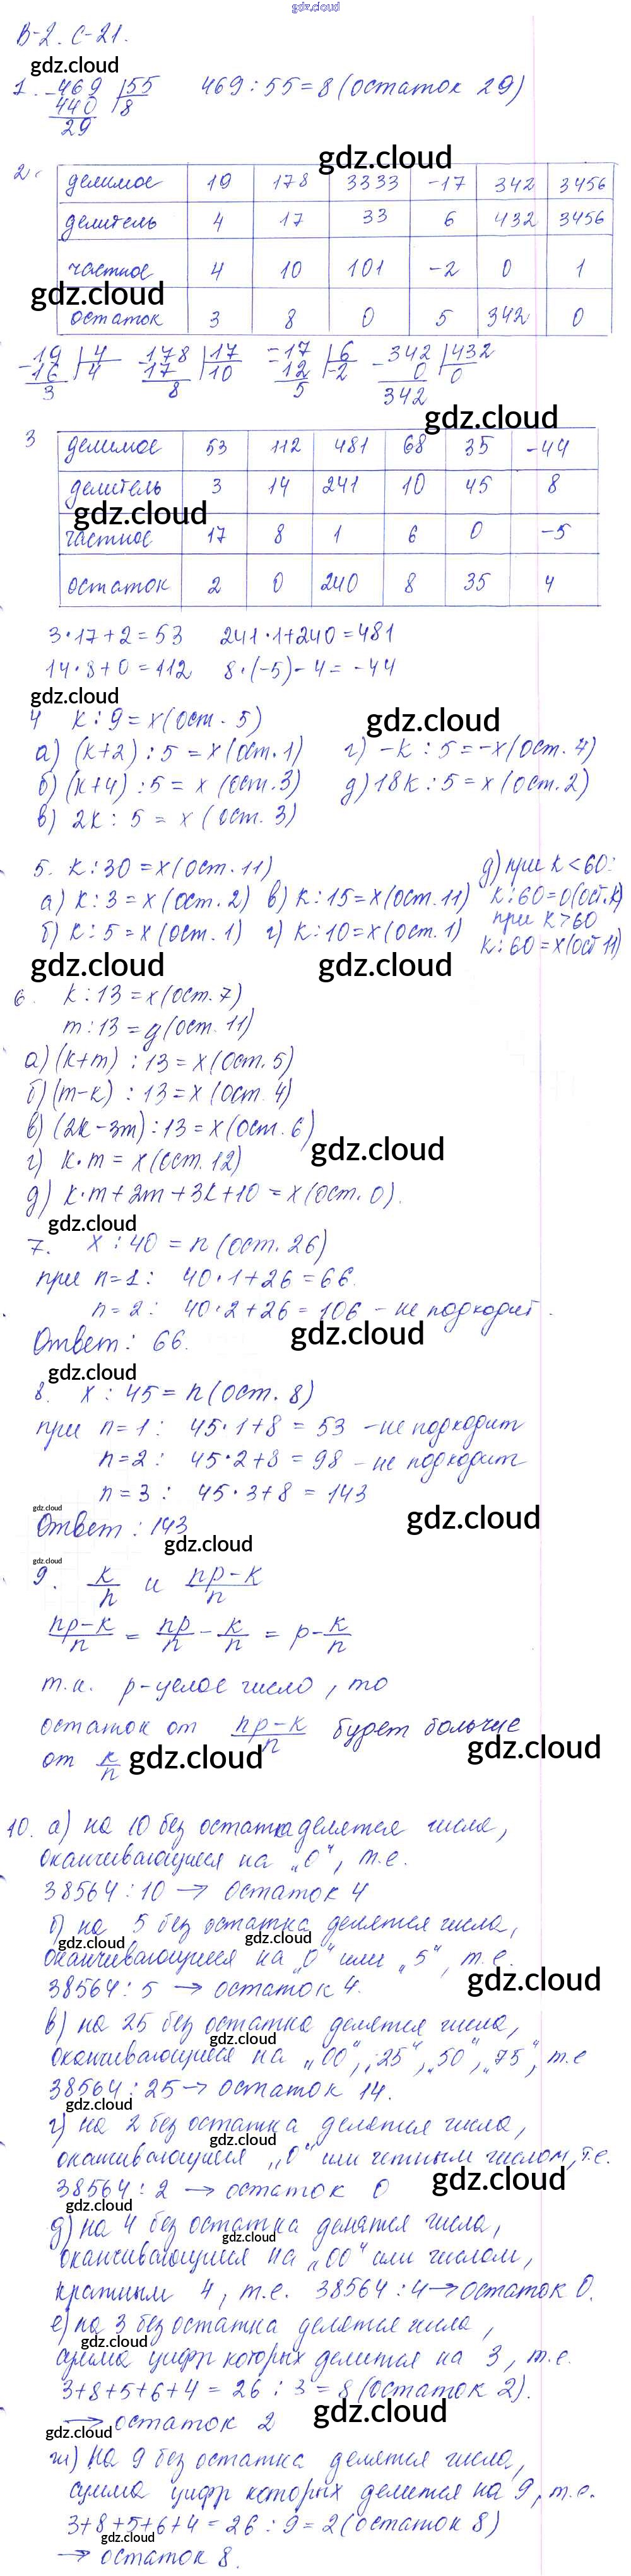 gdz.cloud
В-2. С-21.
gdz.cloud
1. - 469 | 55 469 : 55 = 8 (остаток 29)
440 | 8
29
gdz.cloud
2.
делимое 19 178 3333 -17 342 3456
делитель 4 17 33 6 432 3456
частное 4 10 101 -2 0 1
gdz.cloud
остаток 3 8 0 5 342 0
- 19 | 4 - 178 | 17 - -17 | 6 - 342 | 432
16 | 4 17 | 10 12 | -2 0 | 0
3 8 5 342
gdz.cloud
3
делимое 53 112 481 68 35 -44
делитель 3 14 241 10 45 8
gdz.cloud
частное 17 8 1 6 0 -5
остаток 2 0 240 8 35 4
3·17+2=53 241·1+240=481
14·8+0=112 8·(-5)-4=-44
gdz.cloud
4 k : 9 = x (ост. 5)
gdz.cloud
а) (k+2) : 5 = x (ост. 1) г) -k : 5 = -x (ост. 4)
б) (k+4) : 5 = x (ост. 3) д) 18k : 5 = x (ост. 2)
в) 2k : 5 = x (ост. 3)
5. k : 30 = x (ост. 11) д) при k < 60:
а) k : 3 = x (ост. 2) в) k : 15 = x (ост. 11) k : 60 = 0 (ост. k)
при k > 60
б) k : 5 = x (ост. 1) г) k : 10 = x (ост. 1) k : 60 = x (ост 11)
gdz.cloud gdz.cloud
6. k : 13 = x (ост. 7)
m : 13 = y (ост. 11)
а) (k+m) : 13 = x (ост. 5)
б) (m-k) : 13 = x (ост. 4)
в) (2k-3m) : 13 = x (ост. 6)
gdz.cloud
г) k·m = x (ост. 12)
д) k·m + 2m + 3k + 10 = x (ост. 0).
gdz.cloud
7. x : 40 = n (ост. 26)
при n=1: 40·1+26=66.
n=2: 40·2+26=106 - не подходит.
gdz.cloud
Ответ: 66.
gdz.cloud
8. x : 45 = n (ост. 8)
при n=1: 45·1+8 = 53 - не подходит
n=2: 45·2+8 = 98 - не подходит
n=3: 45·3+8 = 143
gdz.cloud
gdz.cloud
Ответ: 143
gdz.cloud
gdz.cloud
9. k/n и np-k/n
np-k/n = np/n - k/n = p - k/n
т.к. p - целое число, то
остаток от np-k/n будет больше
gdz.cloud
от k/n gdz.cloud
10. а) на 10 без остатка делятся числа,
оканчивающиеся на „0“, т.е.
38564 : 10 → остаток 4
б) на 5 без остатка делятся числа,
gdz.cloud gdz.cloud
оканчивающиеся на „0“ или „5“, т.е.
gdz.cloud
38564 : 5 → остаток 4.
в) на 25 без остатка делятся числа,
gdz.cloud
оканчивающиеся на „00“, „25“, „50“, „75“, т.е
38564 : 25 → остаток 14.
gdz.cloud
г) на 2 без остатка делятся числа,
gdz.cloud
оканчивающиеся „0“ или четным числом, т.е.
gdz.cloud
38564 : 2 → остаток 0
gdz.cloud
д) на 4 без остатка делятся числа,
gdz.cloud
оканчивающиеся на „00“ или числом,
кратным 4, т.е. 38564 : 4 → остаток 0.
е) на 3 без остатка делятся числа,
gdz.cloud
сумма цифр которых делится на 3, т.е.
3+8+5+6+4 = 26 : 3 = 8 (остаток 2).
gdz.cloud
→ остаток 2
gdz.cloud
ж) на 9 без остатка делятся числа,
сумма цифр которых делится на 9, т.е.
3+8+5+6+4 = 26 : 9 = 2 (остаток 8)
gdz.cloud
→ остаток 8.